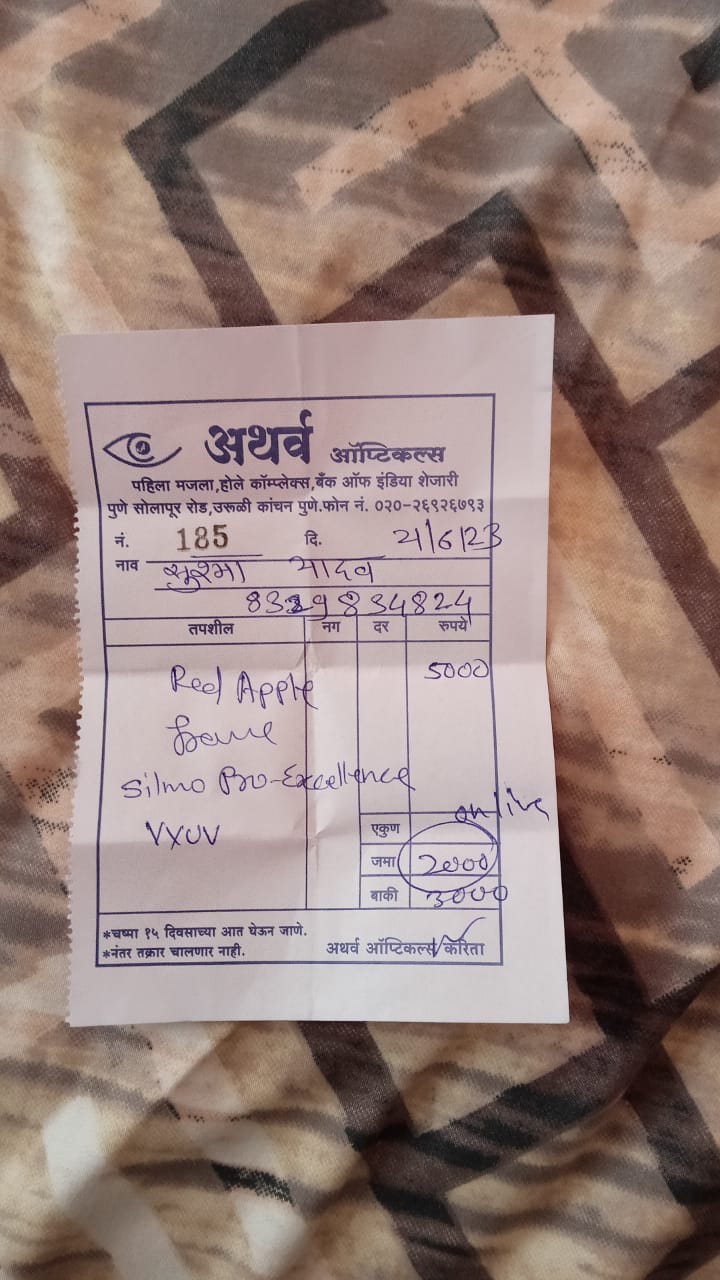 अथर्व ऑप्टिकल्स
पहिला मजला,होले कॉम्प्लेक्स,बँक ऑफ इंडिया शेजारी
पुणे सोलापूर रोड,उरूळी कांचन पुणे.फोन नं. ०२०-२६९२६७९३
नं. 185 दि. 21/6/23
नाव सुश्मा यादव
8329834824
तपशील नग दर रुपये
Red Apple 5000
frame
Silmo Pro-Excellence
VXUV
online
एकुण
जमा 2000
बाकी 3000
*चष्मा १५ दिवसाच्या आत घेऊन जाणे.
*नंतर तक्रार चालणार नाही. अथर्व ऑप्टिकल्स करिता